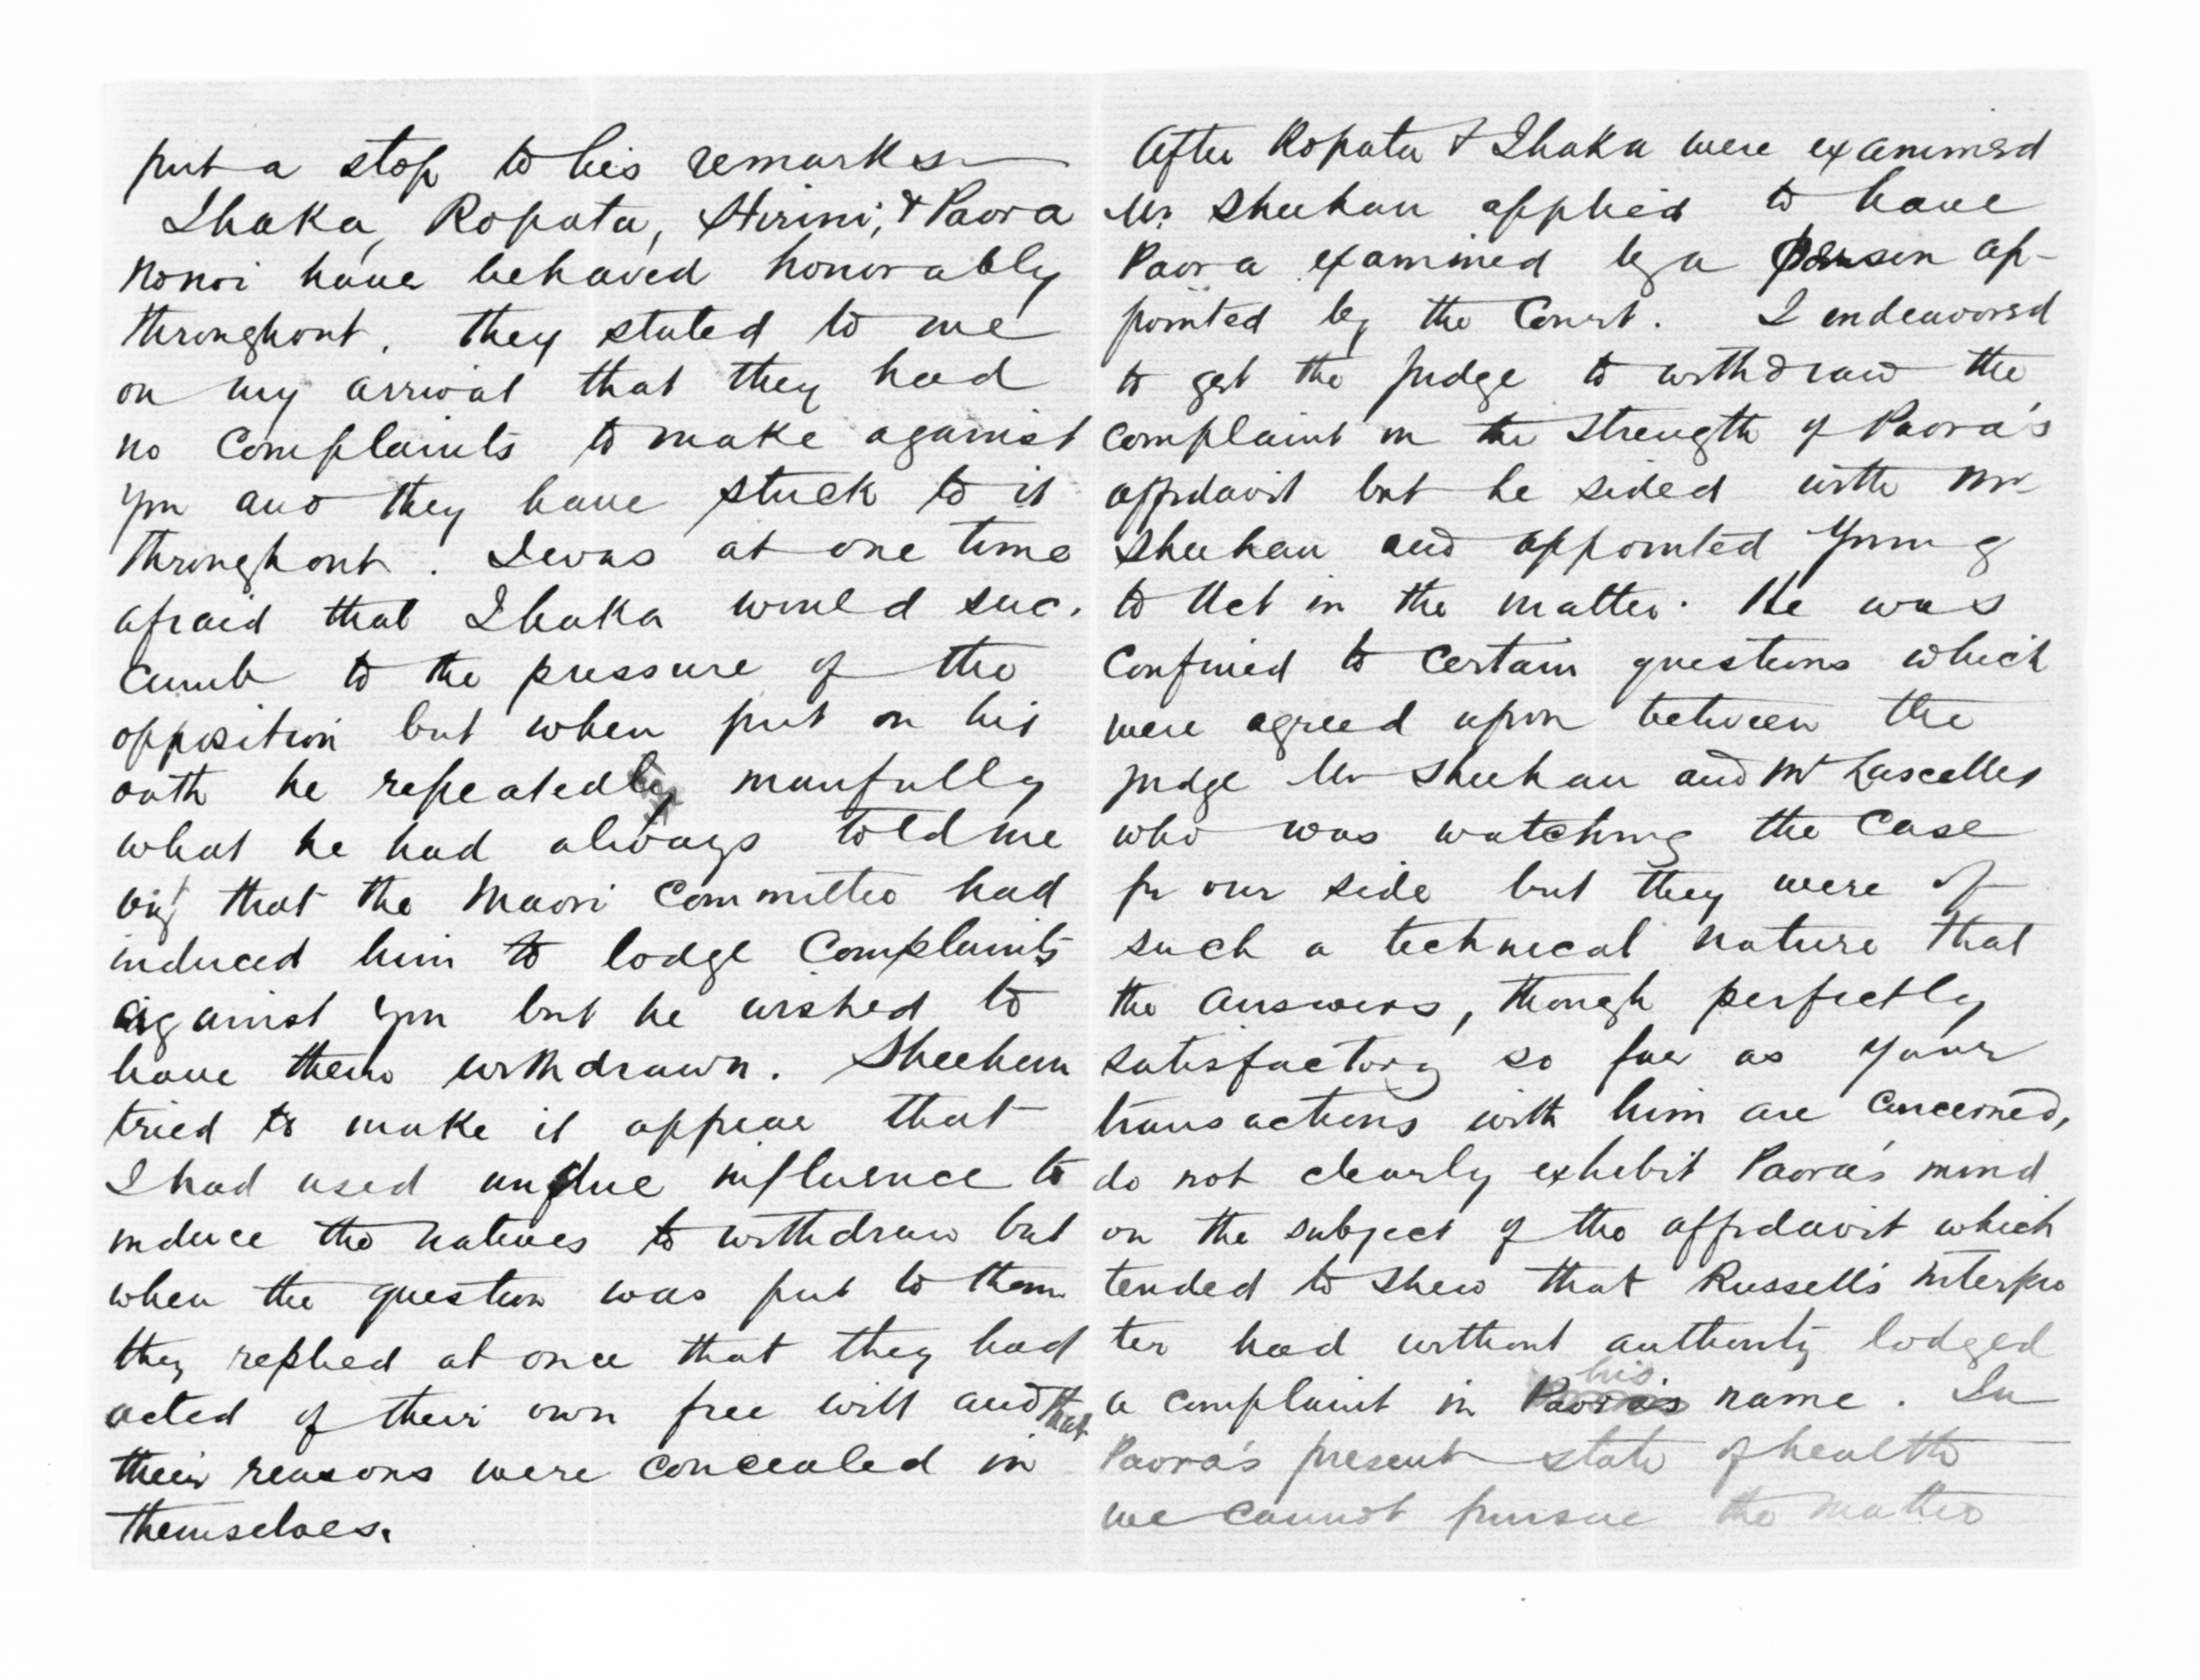 put a stop to his remarks
Ihaka, Ropata, Hirini, & Paora
Nonoi have behaved honorably
throughout. They stated to me
on my arrival that they had
no Complaints to make against
you and they have stuck to it
throughout. I was at one time
afraid that Ihaka would suc.
cumb to the pressure of the
opposition but when put on his
oath he repeatedly manfully
what he had always told me
viz that the Maori Committee had
induced him to lodge Complaints
against you but he wished to
have them withdrawn. Sheehan
tried to make it appear that
I had used undue influence to
induce the natives to withdraw but
when the question was put to them
they replied at once that they had
acted of their own free will and that
their reasons were concealed in
themselves.
After Ropata & Ihaka were examined
Mr Sheehan applied to have
Paora examined by a person ap-
pointed by the Court. I endeavored
to get the judge to withdraw the
complaint on the strength of Paora's
affidavit but he sided with Mr
Sheehan and appointed Young
to Act in the matter. He was
Confined to Certain questions which
were agreed upon between the
judge Mr Sheehan and Mr Lascelles
who was watching the Case
for our side but they were of
such a technical nature that
the answers, though perfectly
satisfactory so far as your
transactions with him are concerned,
do not clearly exhibit Paora's mind
on the subject of the affidavit which
tended to shew that Russell's interpre
ter had without authority lodged
a complaint in Paora's his name. In
Paora's present state of health
we cannot pursue the matter